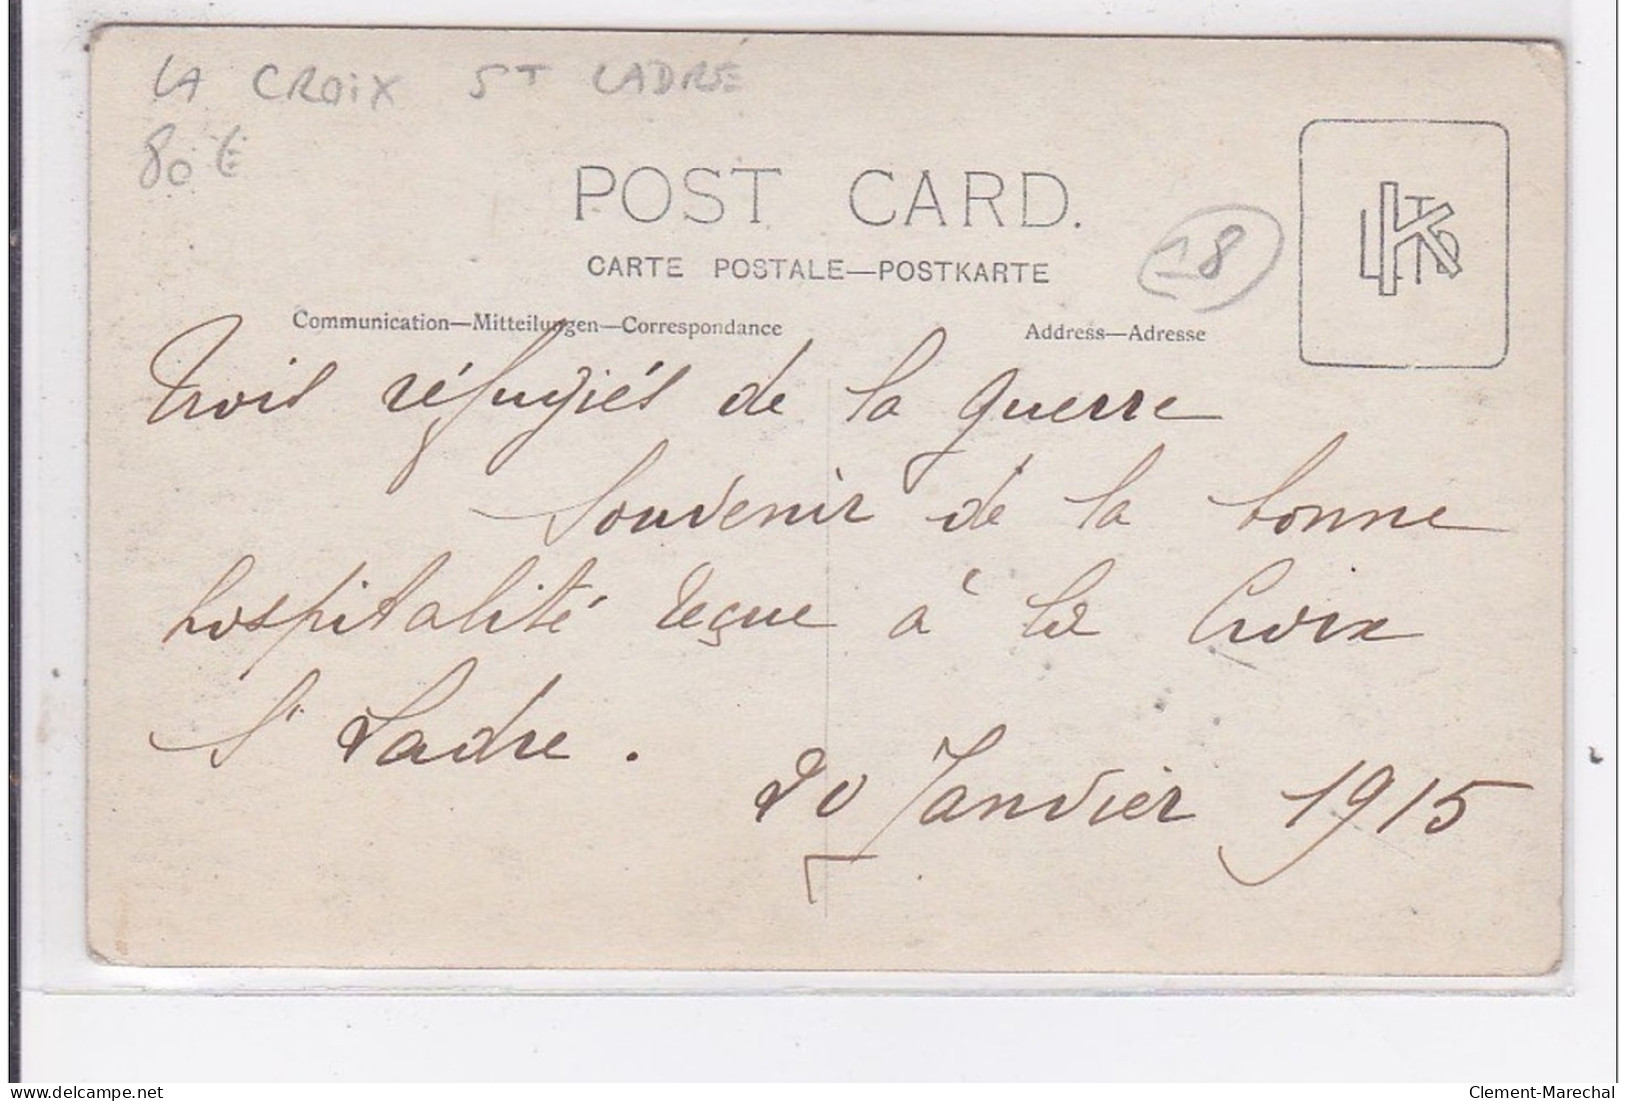 LA CROIX ST LADRE
80 €
POST CARD.
CARTE POSTALE—POSTKARTE
18
Communication—Mitteilungen—Correspondance
Address—Adresse
Trois réfugiés de la guerre
Souvenir de la bonne
hospitalité reçue à la Croix
St Ladre.
20 Janvier 1915
www.delcampe.net
Clement-Marechal